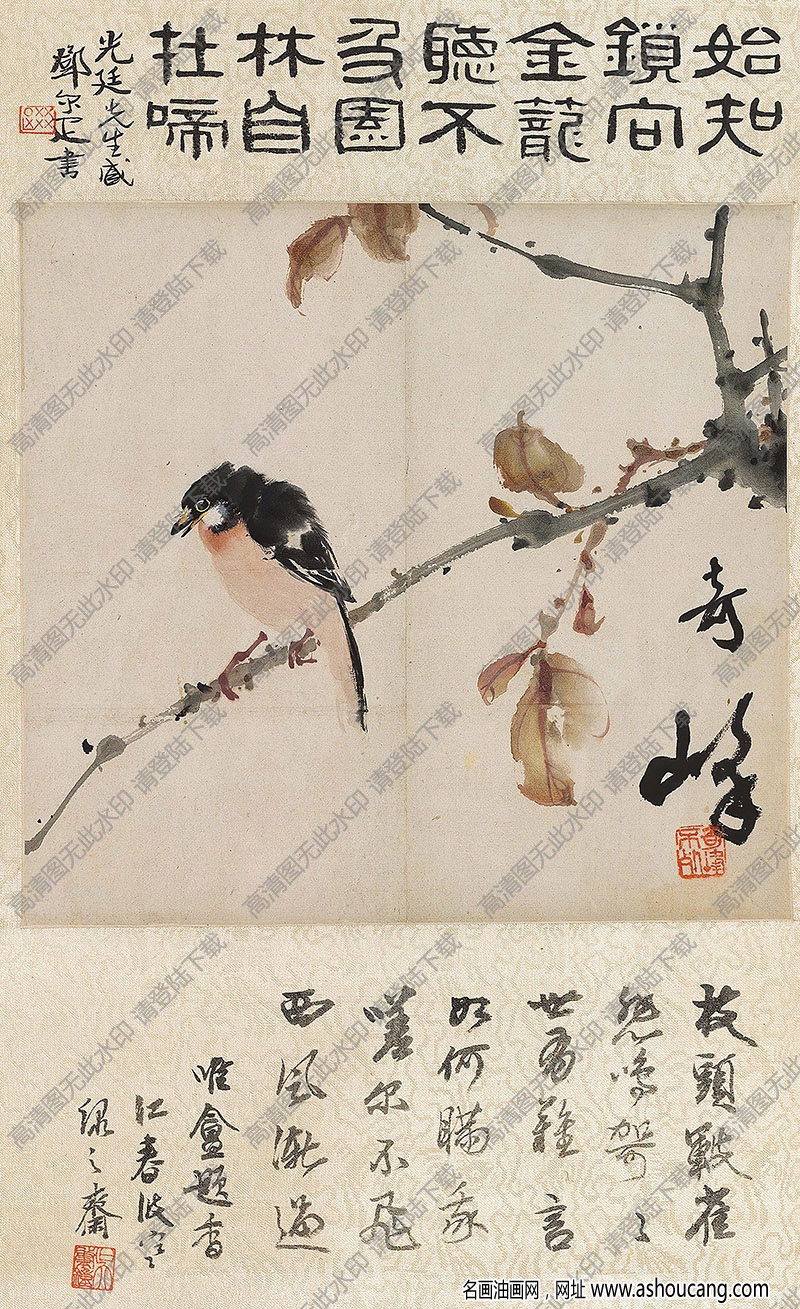 始知
鎖向
金籠
聽不
及園
林自
在啼
光廷先生屬
鄧尔疋書
奇峰
枝頭雀
鳴
世難言
如何瞞我
嗟尔不飛
西風漸過
唯盦題香
江春波
綠之齋
高清图无此水印 请登陆下载
名画油画网，网址 www.ashoucang.com